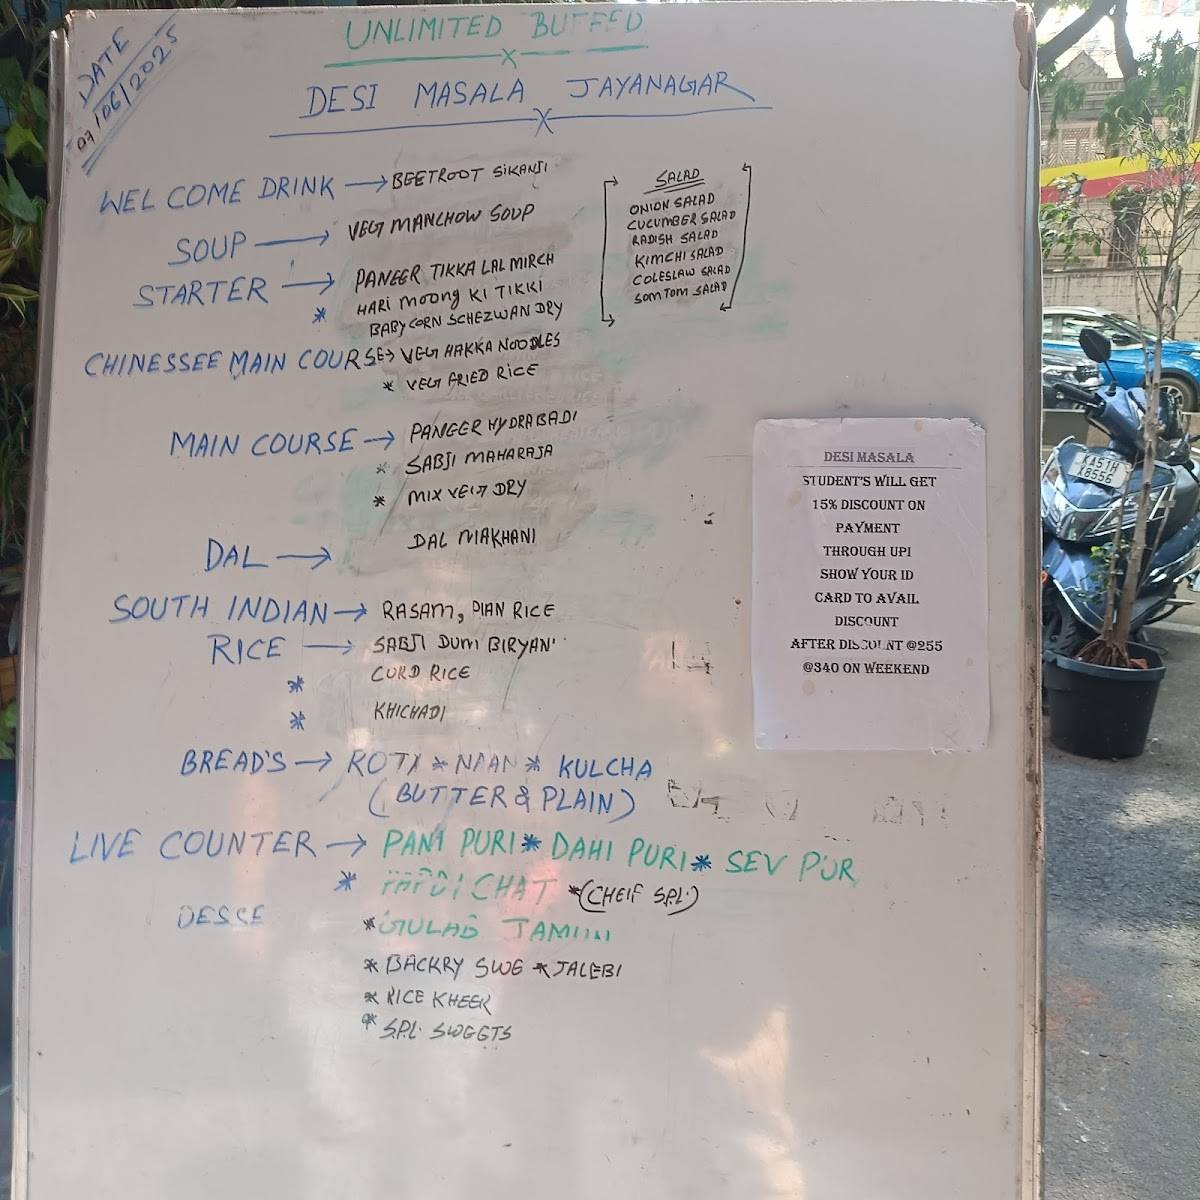 DATE
07/06/2025
UNLIMITED BUFFED
DESI MASALA JAYANAGAR
WEL COME DRINK → BEETROOT SIKANJI
SOUP → VEG MANCHOW SOUP
STARTER → PANEER TIKKA LAL MIRCH
* HARI MOONG KI TIKKI
BABY CORN SCHEZWAN DRY
SALAD
ONION SALAD
CUCUMBER SALAD
RADISH SALAD
KIMCHI SALAD
COLESLAW SALAD
SOM TOM SALAD
CHINESSEE MAIN COURSE → VEG HAKKA NOODLES
* VEG FRIED RICE
MAIN COURSE → PANEER HYDRABADI
* SABJI MAHARAJA
* MIX VEG DRY
DAL → DAL MAKHANI
SOUTH INDIAN → RASAM, PIAN RICE
RICE → SABJI DUM BIRYANI
* CURD RICE
* KHICHADI
BREAD'S → ROTI * NAAN * KULCHA
(BUTTER & PLAIN)
LIVE COUNTER → PANI PURI * DAHI PURI * SEV PUR
* CHAT * (CHEIF SPL.)
DESSE * GULAB JAMUN
* BACKRY SWE * JALEBI
* RICE KHEER
* SPL. SWEETS
DESI MASALA
STUDENT'S WILL GET
15% DISCOUNT ON
PAYMENT
THROUGH UPI
SHOW YOUR ID
CARD TO AVAIL
DISCOUNT
AFTER DISCOUNT @255
@340 ON WEEKEND
KA51H
X8556